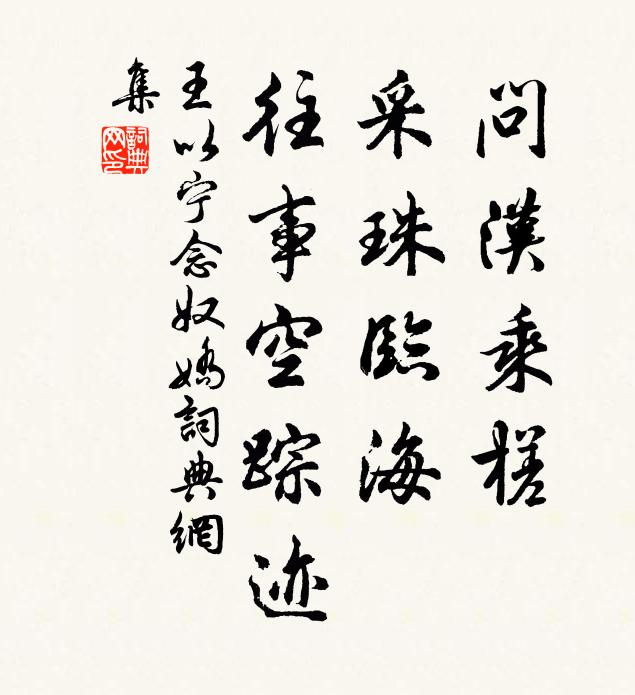 問漢乘槎
采珠臨海
往事空踪迹
王以宁念奴嬌詞典網
集
詞典
网印